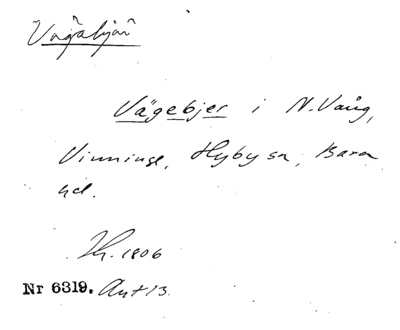 Vägabjär
Vägebjer i N. Vång,
Vinninge, Hyby sn, Bara
hd.
Kr. 1806
Nr 6319. Ant 13.